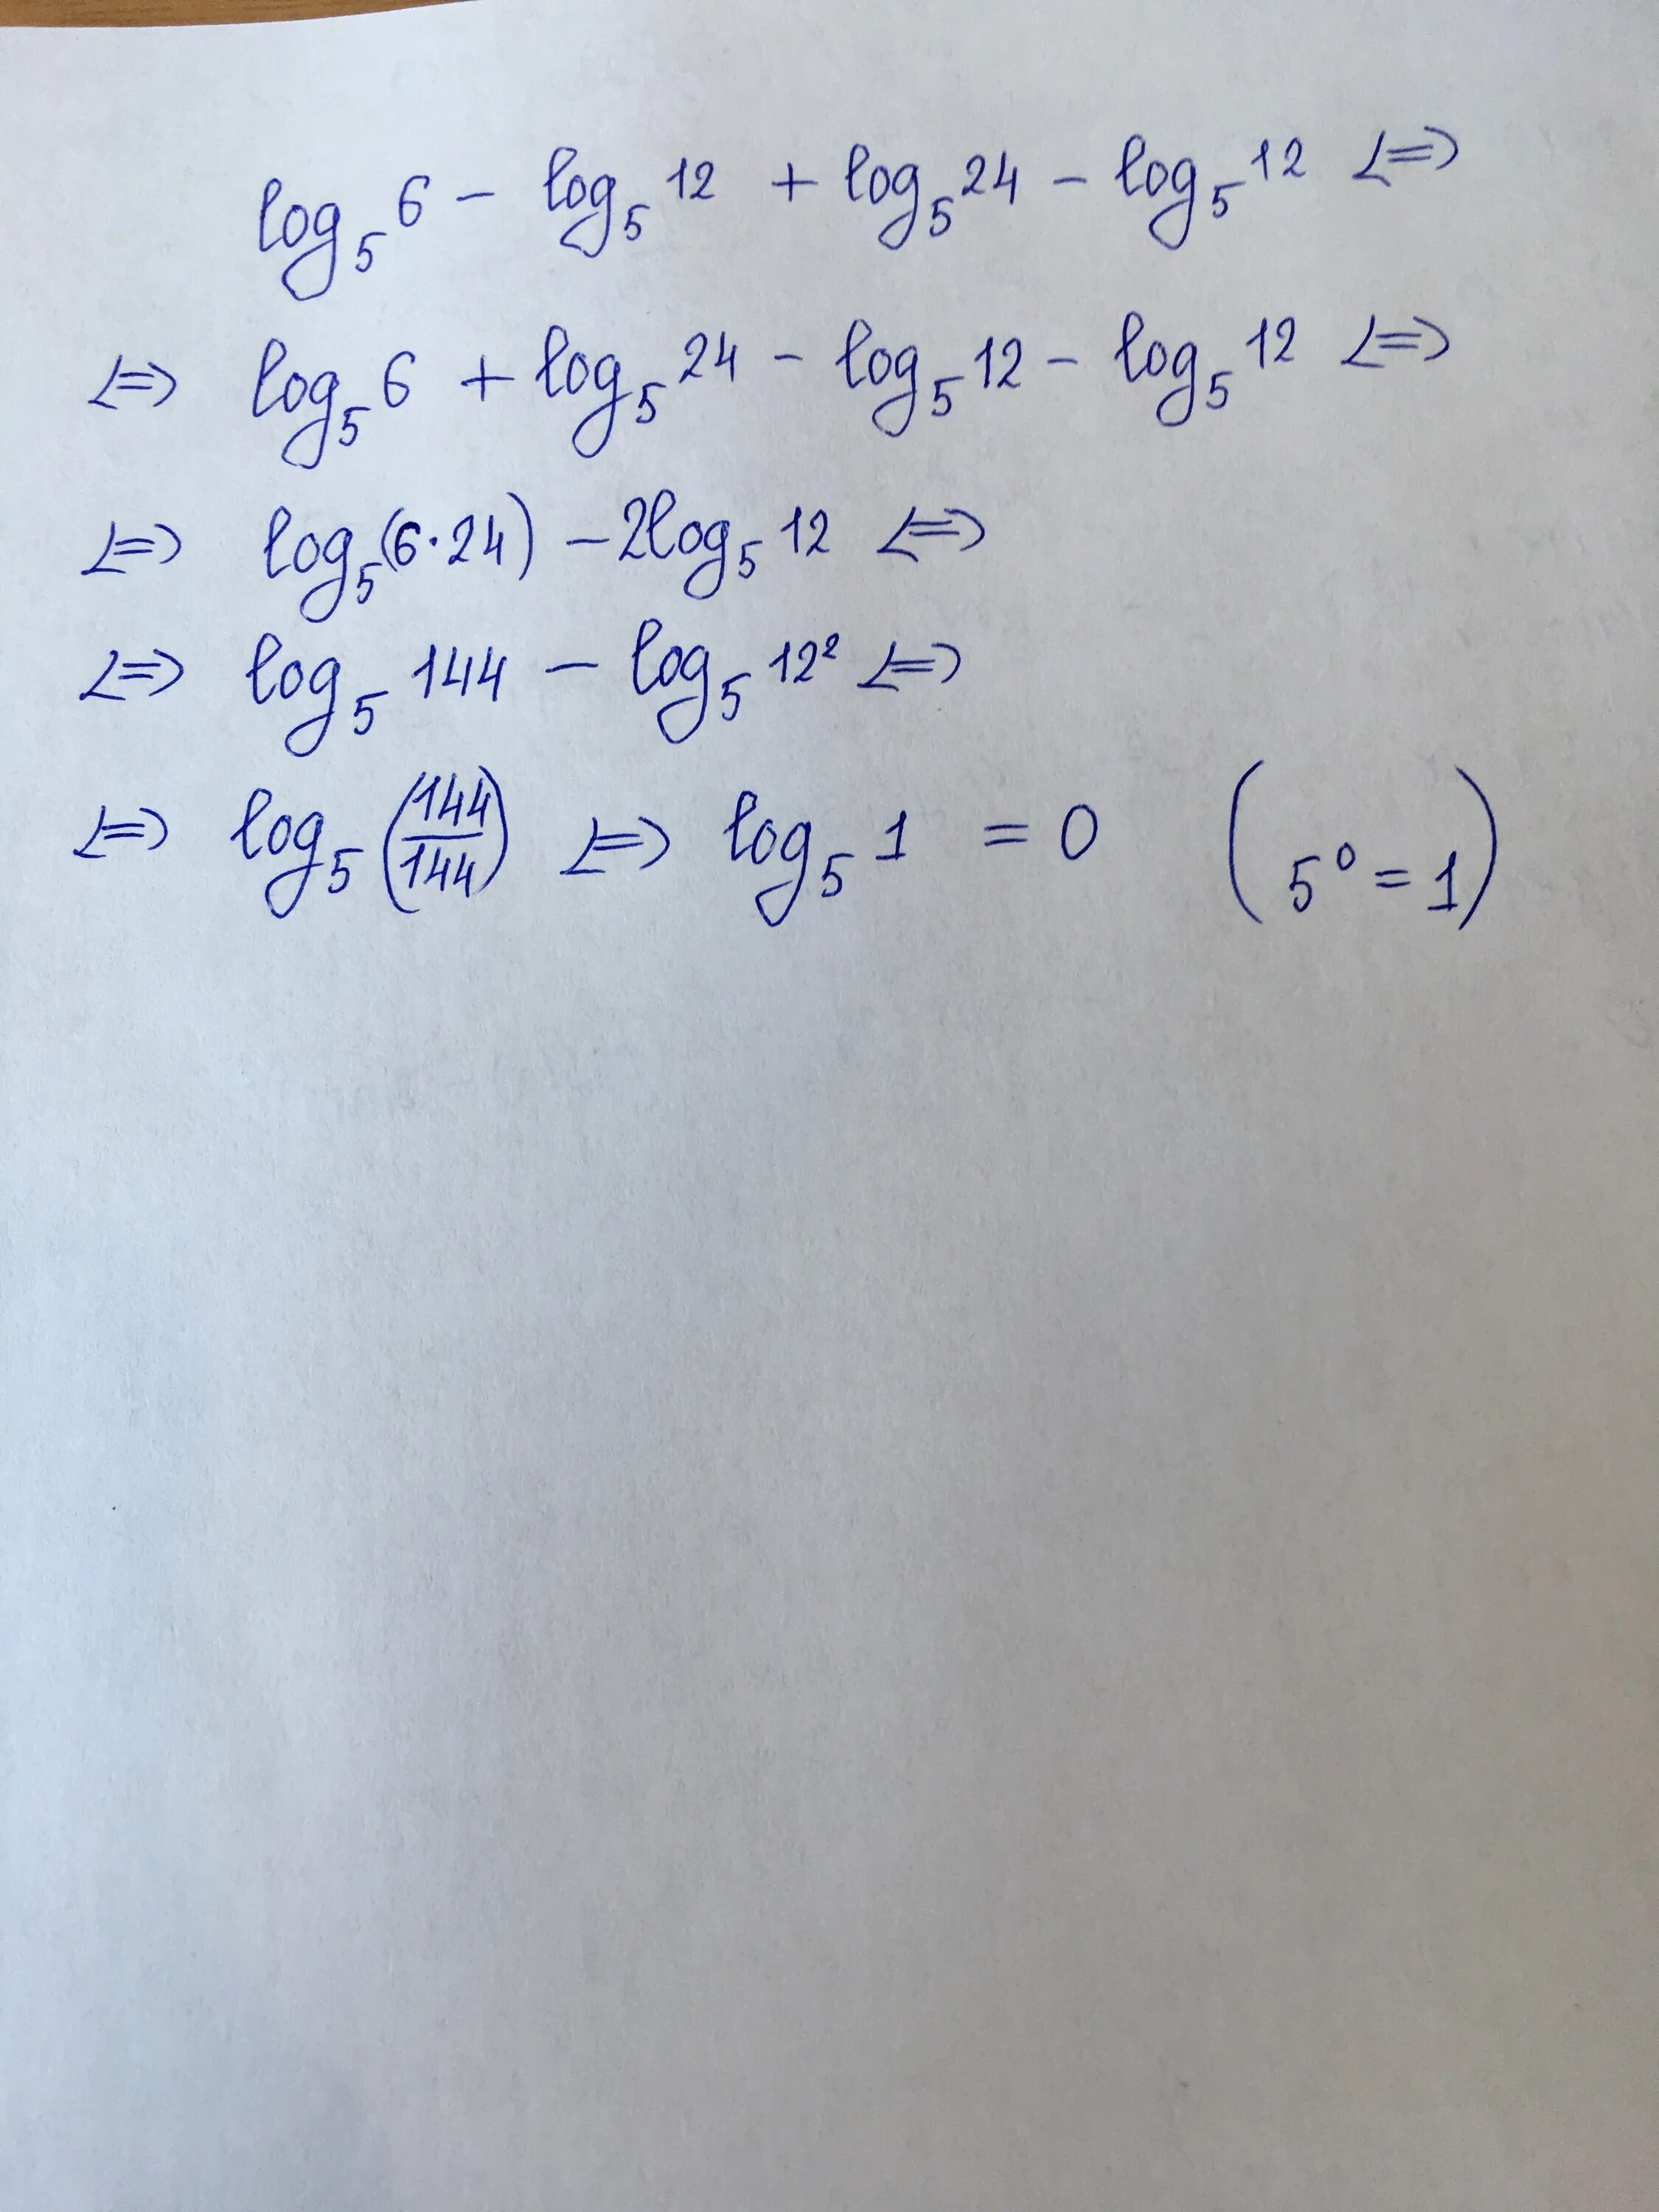 log₅6 − log₅12 + log₅24 − log₅12 <=>
<=> log₅6 + log₅24 − log₅12 − log₅12 <=>
<=> log₅(6·24) − 2log₅12 <=>
<=> log₅144 − log₅12² <=>
<=> log₅(144/144) <=> log₅1 = 0 (5⁰ = 1)